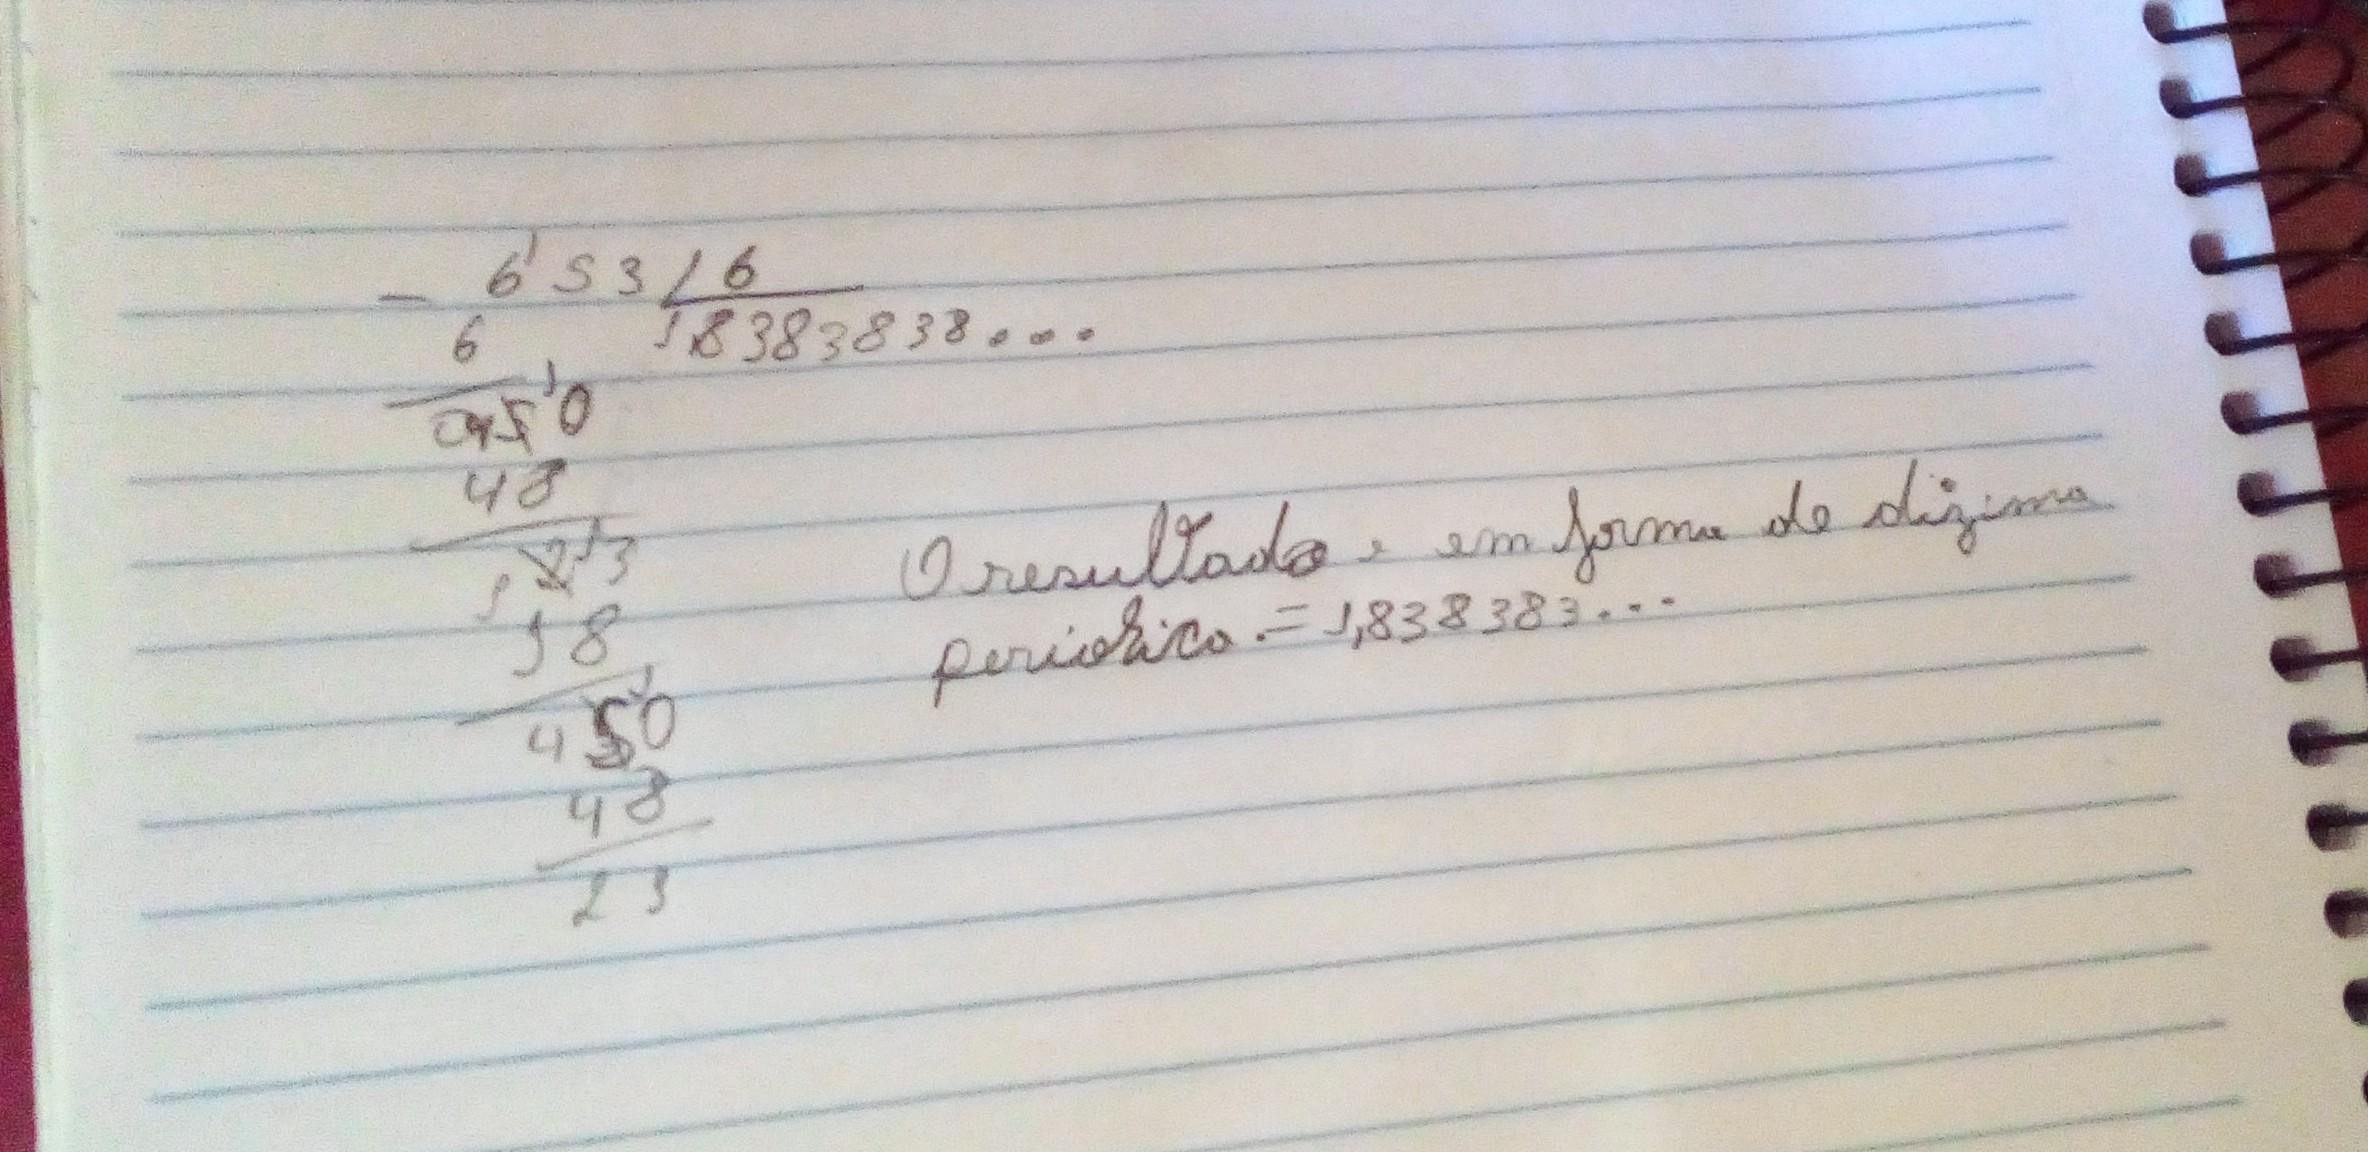 - 6'53 / 6
6 1,8383838...
0450
48
23
18
450
48
23
O resultado, em forma de dizima
periodica.= 1,838383...